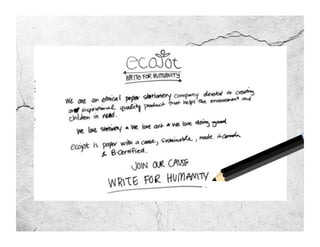 ecojot
WRITE FOR HUMANITY
We are an ethical paper stationery company devoted to creating
and inspirational quality product that helps the environment and
children in need.
We love stationery & We love art & we love doing good
ecojot is paper with a cause, sustainable, made in canada
& B-Certified.
JOIN OUR CAUSE
WRITE FOR HUMANITY